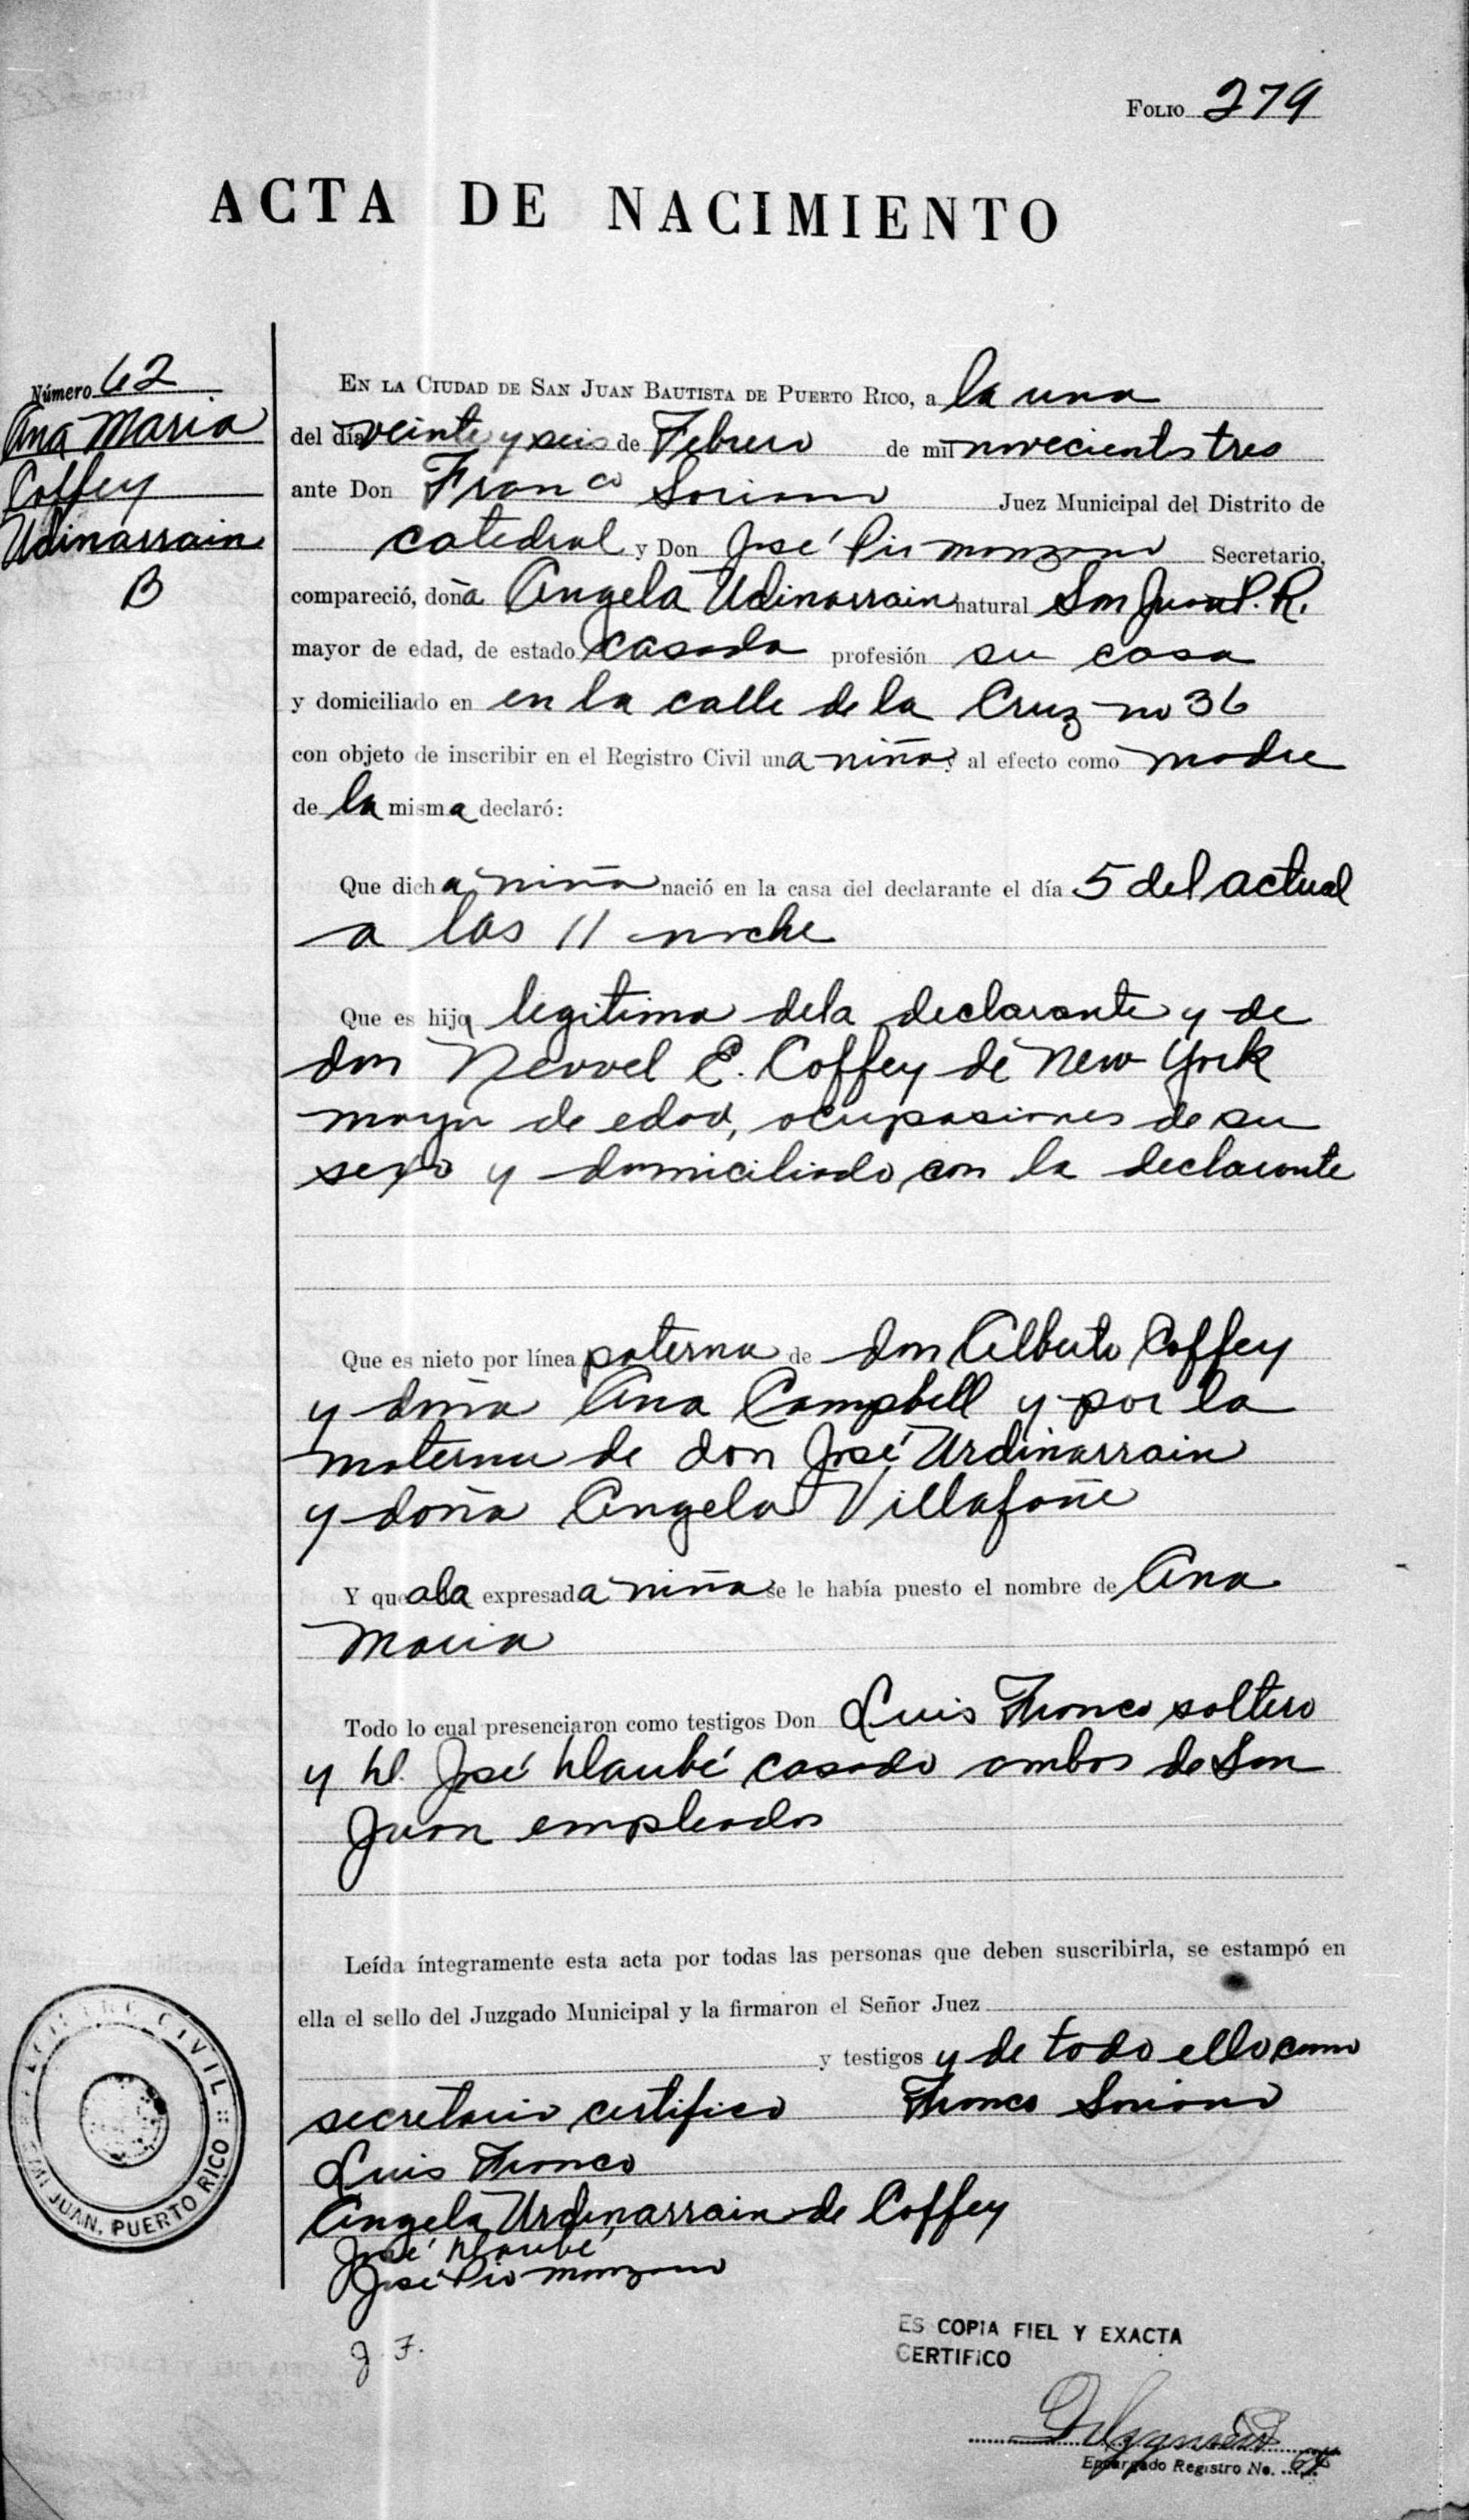 FOLIO 279
ACTA DE NACIMIENTO
Número 62
Ana Maria
Coffey
Udinarrain
B
EN LA CIUDAD DE SAN JUAN BAUTISTA DE PUERTO RICO, a la una
del día veinte y seis de Febrero de mil novecientos tres
ante Don Franco Soriano Juez Municipal del Distrito de
Catedral y Don José Pio Manzano Secretario,
compareció, doña Angela Udinarrain natural San Juan P.R.
mayor de edad, de estado casada profesión su casa
y domiciliado en en la calle de la Cruz no 36
con objeto de inscribir en el Registro Civil una niña y al efecto como madre
de la misma declaró:
Que dicha niña nació en la casa del declarante el día 5 del actual
a las 11 noche
Que es hija legitima dela declarante y de
don Nevvel E. Coffey de New York
mayor de edad, ocupasiones de su
sexo y domiciliado con la declarante
Que es nieto por línea paterna de don Alberto Coffey
y doña Ana Campbell y por la
materna de don José Urdinarrain
y doña Angela Villafañe
Y que ala expresada niña se le había puesto el nombre de Ana
Maria
Todo lo cual presenciaron como testigos Don Luis Franco soltero
y José casado ambos de San
Juan empleados
Leída íntegramente esta acta por todas las personas que deben suscribirla, se estampó en
ella el sello del Juzgado Municipal y la firmaron el Señor Juez
y testigos y de todo ello como
secretario certifico Franco Soriano
Luis Franco
Angela Urdinarrain de Coffey
José
José Pio Manzano
J. F.
REGISTRO CIVIL
SAN JUAN, PUERTO RICO
ES COPIA FIEL Y EXACTA
CERTIFICO
Encargado Registro No.